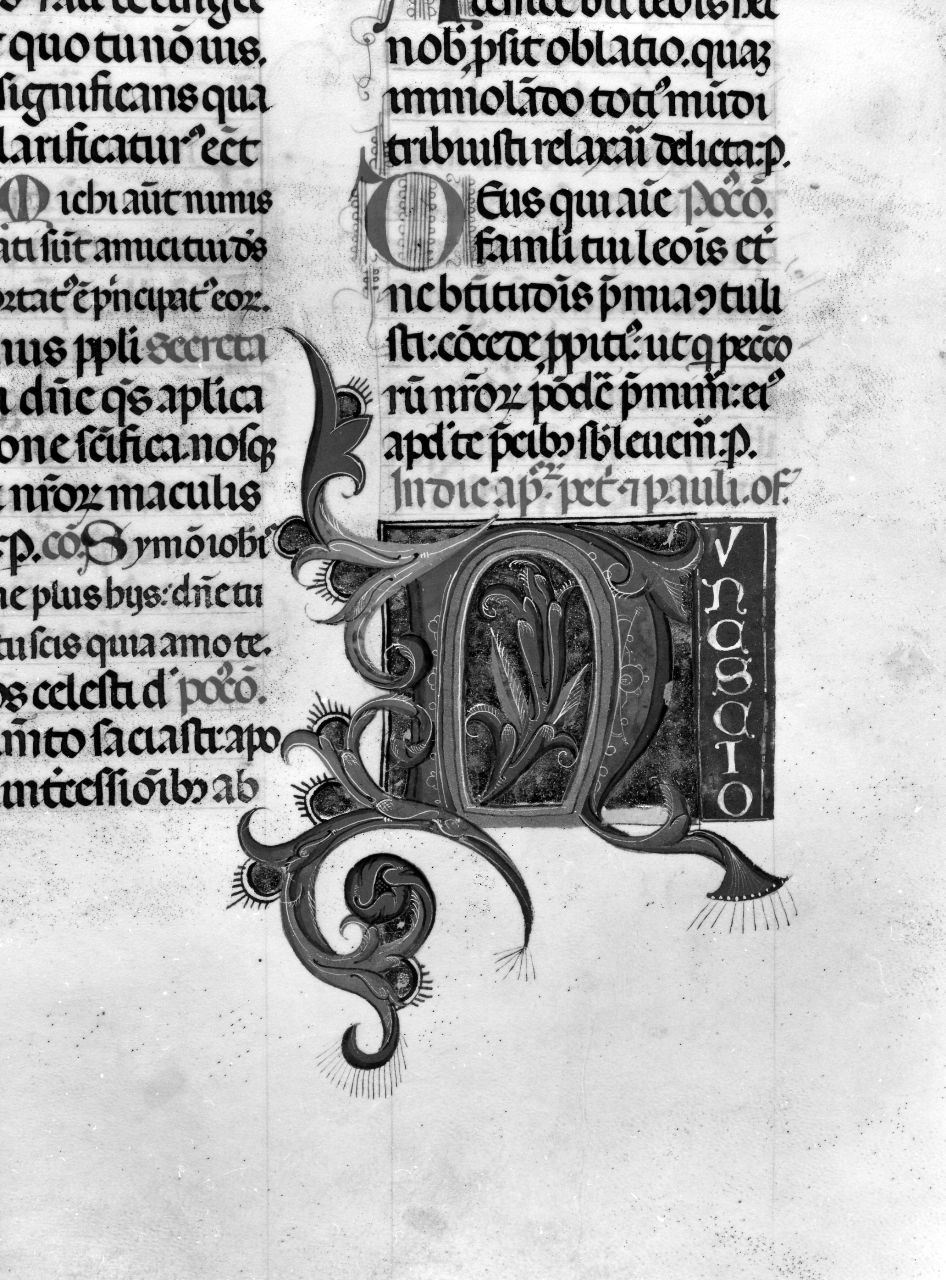 quo tu nō uis.
significans qua
larificatur⁹ ec̄t
Michi aūt nimis
ati sūt amici tui dš
ortat⁹ ē p̄ncipat⁹ eoꝝ.
ppli secreta
dn̄e qs̄ aplica
one sc̄ifica. nosqꝫ
nr̄oꝝ maculis
P. cō. Symō iohī⁹
plus hijs: dn̄e tu
tu scis quia amo te.
celesti d' pꝰcō.
m̄ito saciasti: apo
int̄cessiōibꝫ ab
nob̄ p̄sit oblatio. quaꝫ
immolādo toti⁹ mūdi
tribuisti relaxari delicta: P.
DEus qui aīe pꝰcō.
famli tui leoīs et̄
ne bt̄itudīs p̄mia ꝯtuli
sti: cōcede ppiti⁹: ut q peccō
rū nr̄oꝝ pōde p̄mim̄: ei⁹
apd' te p̄cibꝫ sb̄leuem̄. P.
In die apꝝ pet̄ ⁊ pauli. of.
N
v
n
c
s
c
i
o